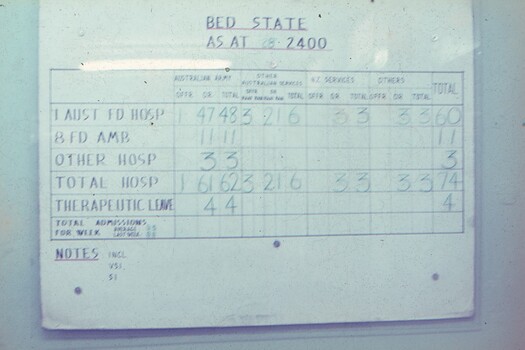 BED STATE
AS AT 2400
AUSTRALIAN ARMY OTHER AUSTRALIAN SERVICES N.Z. SERVICES OTHERS TOTAL
OFFR O.R. TOTAL OFFR OR TOTAL OFFR O.R. TOTAL OFFR O.R. TOTAL
1 AUST FD HOSP 1 47 48 3 2 1 6 3 3 3 3 60
8 FD AMB 11 11 11
OTHER HOSP 3 3 3
TOTAL HOSP 1 61 62 3 2 1 6 3 3 3 3 74
THERAPEUTIC LEAVE 4 4 4
TOTAL ADMISSIONS
FOR WEEK AVERAGE
LAST WEEK
NOTES INCL
VSI
SI